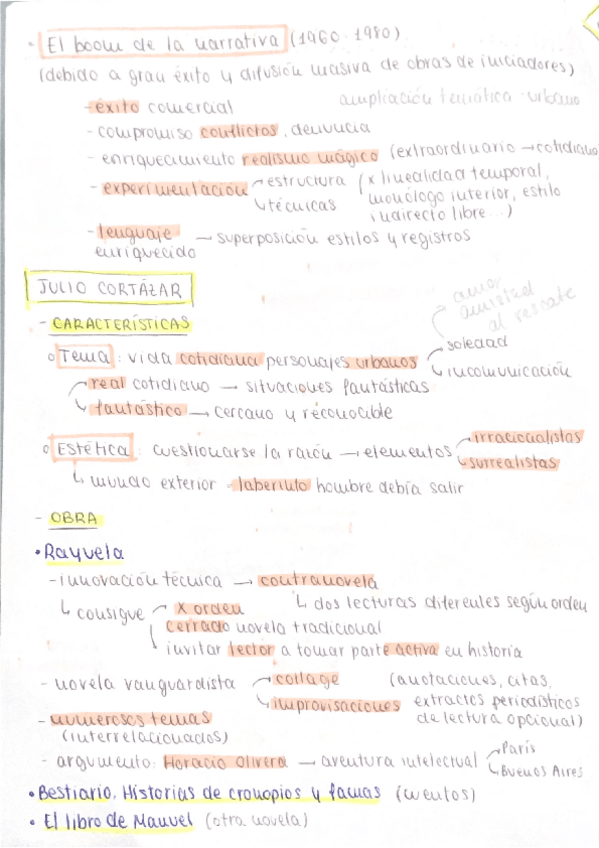 · El boom de la narrativa (1960-1980)
(debido a gran éxito y difusión masiva de obras de iniciadores)
- éxito comercial
ampliación temática - urbano
- compromiso conflictos, denuncia
- enriquecimiento realismo mágico (extraordinario → cotidiano
- experimentación → estructura (x linealidad temporal,
↳ técnicas monólogo interior, estilo
indirecto libre...)
- lenguaje — superposición estilos y registros
enriquecido
JULIO CORTÁZAR
amor
amistad
al rescate
- CARACTERÍSTICAS
o Tema: vida cotidiana personajes urbanos → soledad
↳ incomunicación
→ real cotidiano — situaciones fantásticas
↳ fantástico → cercano y reconocible
o Estética: cuestionarse la razón → elementos → irracionalistas
↳ surrealistas
↳ mundo exterior = laberinto hombre debía salir
- OBRA
• Rayuela
- innovación técnica → contranovela
↳ consigue → x orden ↳ dos lecturas diferentes según orden
cerrado novela tradicional
↳ invitar lector a tomar parte activa en historia
- novela vanguardista → collage (anotaciones, citas,
↳ improvisaciones extractos periodísticos
de lectura opcional)
- numerosos temas
(interrelacionados)
- argumento: Horacio Olivera → aventura intelectual → París
↳ Buenos Aires
• Bestiario, Historias de cronopios y famas (cuentos)
• El libro de Manuel (otra novela)